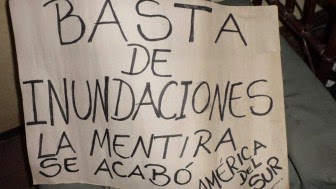 BASTA
DE
INUNDACIONES
LA MENTIRA
SE ACABÓ
AMÉRICA
DEL
SUR